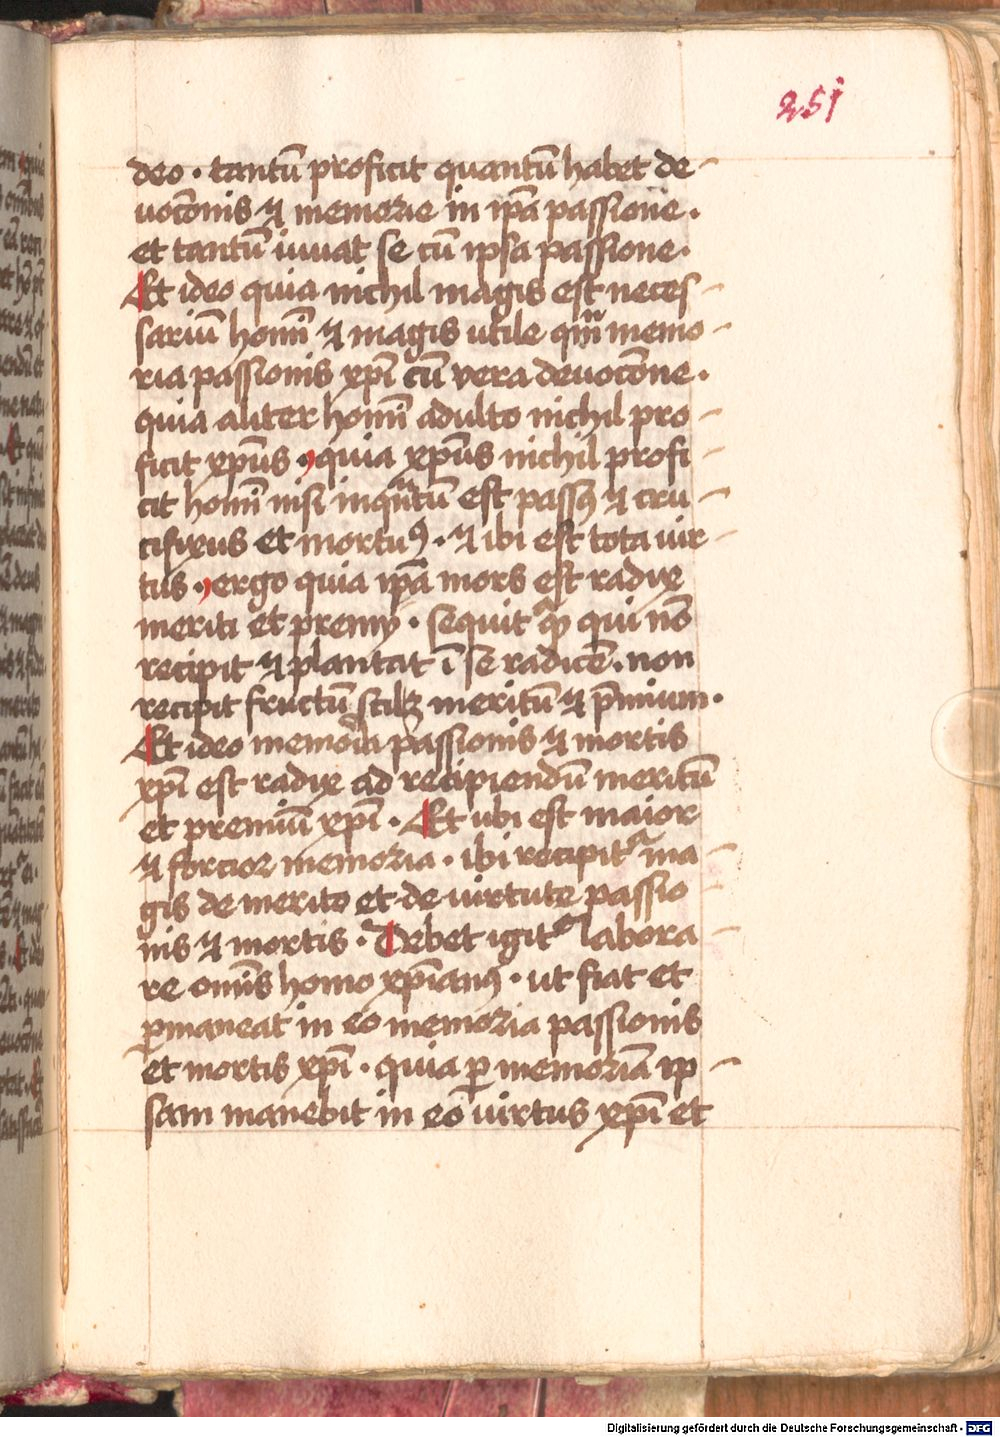 251
deo · tantū proficit quantū habet de-
uocōnis ⁊ memorie in ip̄a passione ·
et tantū iuuat se cū ipsa passione ·
Et ideo quia nichil magis est neces-
sariū homī ⁊ magis utile qm̄ memo-
ria passionis xp̄i cū vera deuocōne ·
quia aliter homī adulto nichil pro-
ficit xp̄us · quia xp̄us nichil profi-
cit homī nisi inqn̄tū est passꝰ ⁊ cru-
cifixus et mortuꝰ · ⁊ ibi est tota uir-
tus · ergo quia ip̄a mors est radix
meriti et premij · sequit᷑ qꝫ qui nō
recipit ⁊ plantat ī se radicē · non
recipit fructū scilꝫ meritū ⁊ p̄mium ·
Et ideo memoria passionis ⁊ mortis
xp̄i est radix ad recipiendū meritū
et premiū xp̄i · Et ubi est maior
⁊ forcior memoria · ibi recipit᷑ ma-
gis de merito et de uirtute passio-
nis ⁊ mortis · Debet igit᷑ labora-
re omīs homo xp̄ianꝰ · ut fiat et
ꝑmaneat in eo memoria passionis
et mortis xp̄i · quia ꝑ memoriā ip-
sam manebit in eo uirtus xp̄i et
Digitalisierung gefördert durch die Deutsche Forschungsgemeinschaft - DFG